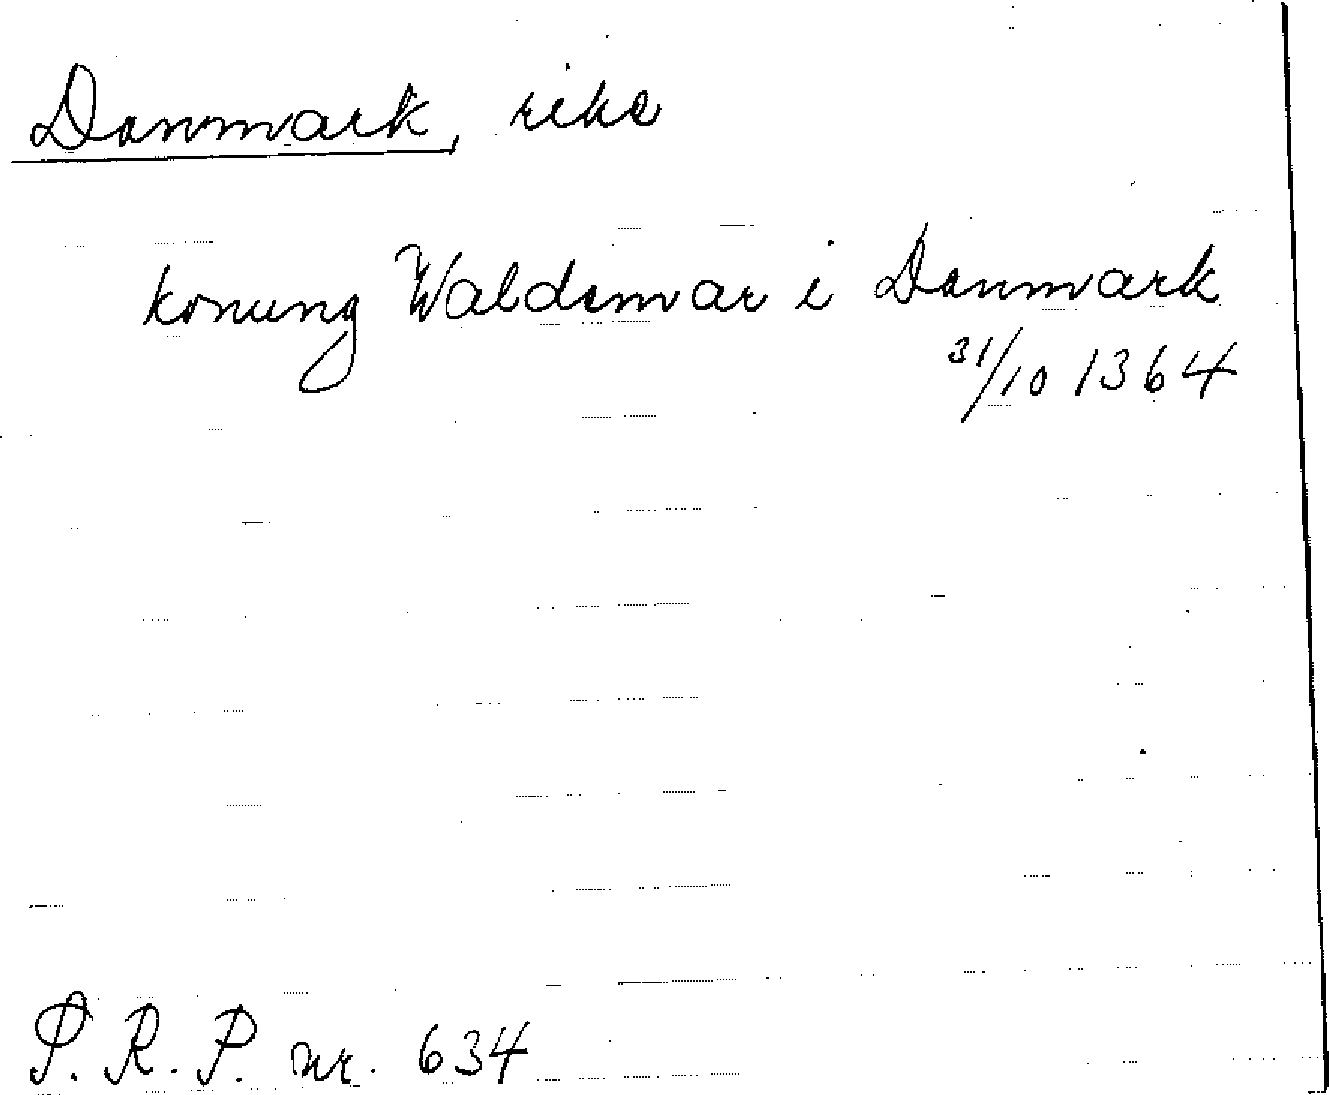 Danmark, rike
konung Waldemar i Danmark
31/10 1364
P.R.P. nr. 634